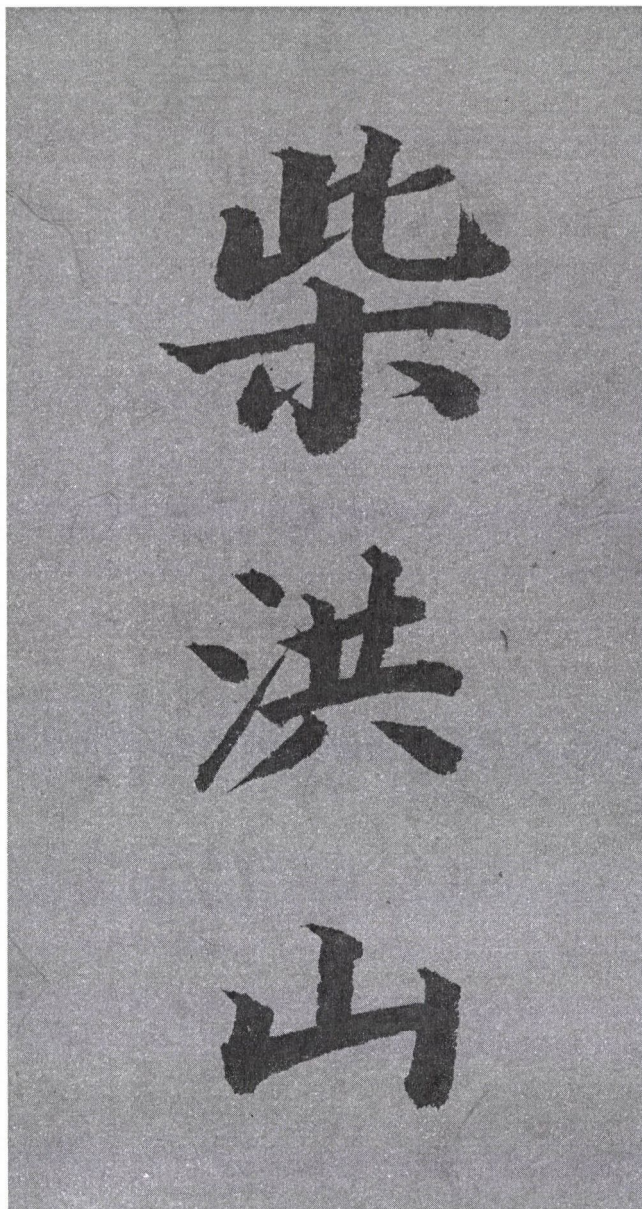 柴洪山